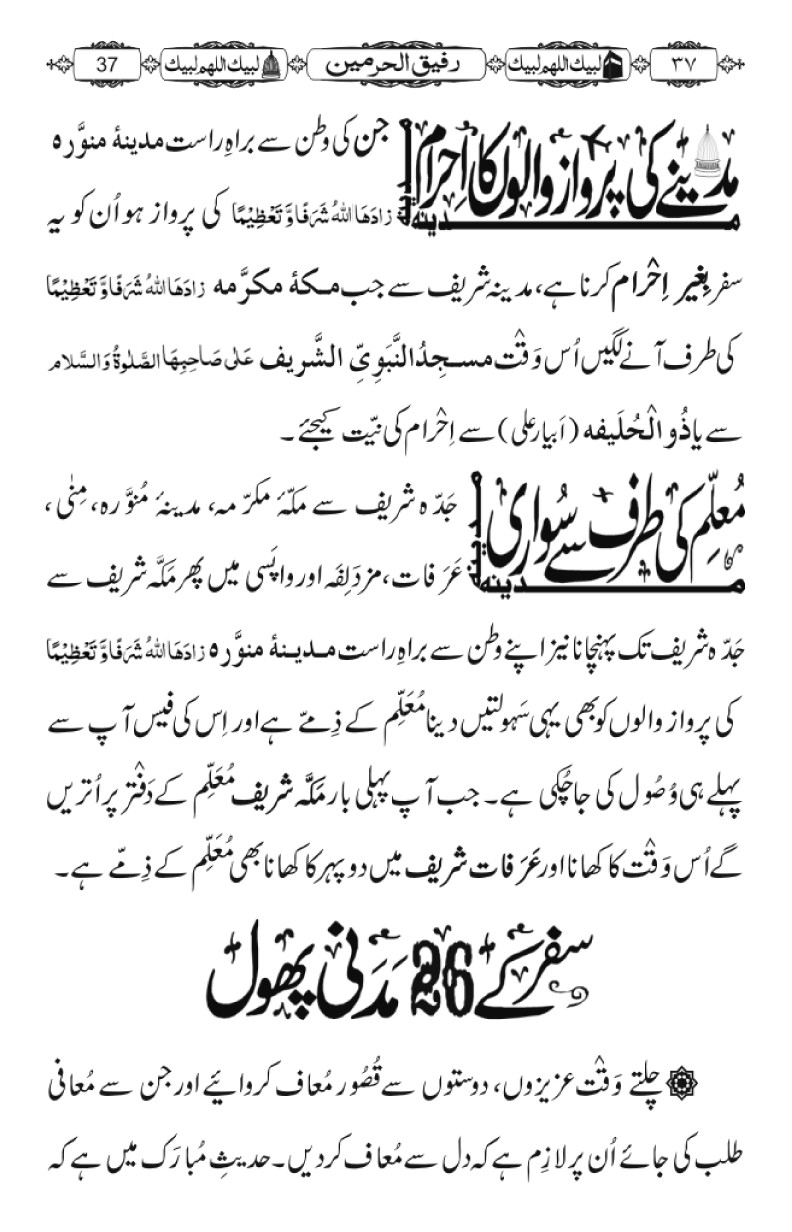 ۳۷ لبیك اللھم لبیك رفیق الحرمین لبیك اللھم لبیك 37
مدینے کی پرواز والوں کا اِحْرام
جن کی وطن سے براہِ راست مدینۂ منوَّرہ
زَادَهَا اللهُ شَرَفًا وَّ تَعْظِیْمًا کی پرواز ہو اُن کو یہ
سفر بِغیر اِحْرام کرنا ہے، مدینہ شریف سے جب مکۂ مکرَّمہ زَادَهَا اللهُ شَرَفًا وَّ تَعْظِیْمًا
کی طرف آنے لگیں اُس وَقْت مسجِدُ النَّبَوِیِّ الشَّریف عَلٰی صَاحِبِهَا الصَّلٰوةُ وَالسَّلام
سے یا ذُو الْحُلَیفہ (اَبیارِ علی) سے اِحْرام کی نیّت کیجئے ۔
مُعلِّم کی طرف سے سُواری
جَدّہ شریف سے مکّۂ مکرّمہ، مدینۂ مُنوَّرہ، مِنٰی،
عَرَفات، مزدَلِفَہ اور واپَسی میں پھر مکَّہ شریف سے
جَدّہ شریف تک پہنچانا نیز اپنے وطن سے براہِ راست مدینۂ منوَّرہ زَادَهَا اللهُ شَرَفًا وَّ تَعْظِیْمًا
کی پرواز والوں کو بھی یہی سَہولتیں دینا مُعَلِّم کے ذِمّے ہے اور اِس کی فیس آپ سے
پہلے ہی وُصُول کی جا چُکی ہے۔ جب آپ پہلی بار مکَّہ شریف مُعَلِّم کے دَفْتر پر اُتریں
گے اُس وَقْت کا کھانا اور عَرَفات شریف میں دو پہر کا کھانا بھی مُعَلِّم کے ذِمّے ہے۔
سفر کے 26 مَدَنی پھول
چلتے وَقْت عزیزوں، دوستوں سے قُصُور مُعاف کروایئے اور جن سے مُعافی
طلب کی جائے اُن پر لازِم ہے کہ دل سے مُعاف کردیں۔ حدیثِ مُبارَک میں ہے کہ